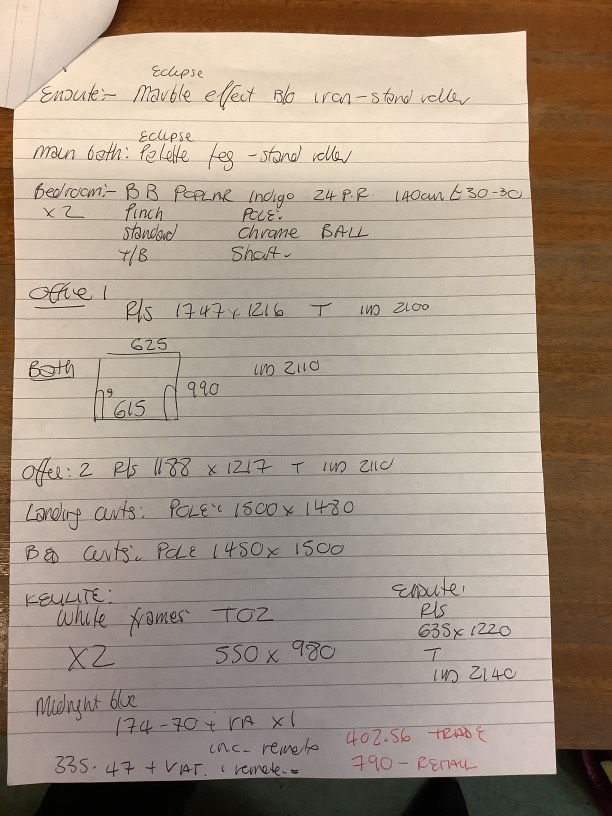 Eclipse
Ensuite:- Marble effect B/o iron-stand roller
Eclipse
Main bath: Palette feg - stand roller
Bedroom:- BB POPLAR Indigo 24 P.R. 140cm
x2 Pinch POLE:
standard chrome BALL
T/B Shaft-
Office 1
R/s 1747 x 1216 T IWD 2100
625
Bath IWD 2110
990
9
615
Office: 2 R/s 1188 x 1217 T IWD 2110
Landing curts: POLE: 1500 x 1480
Curts: POLE 1450 x 1500
KEYLITE: Ensuite:
White frames TO2 R/s
635 x 1220
X2 550 x 980 T
IWD 2140
Midnight blue
174-70 + VA x1
inc- remote 402.56 TRADE
335.47 + VAT. 1 remote.= 790 - RETAIL